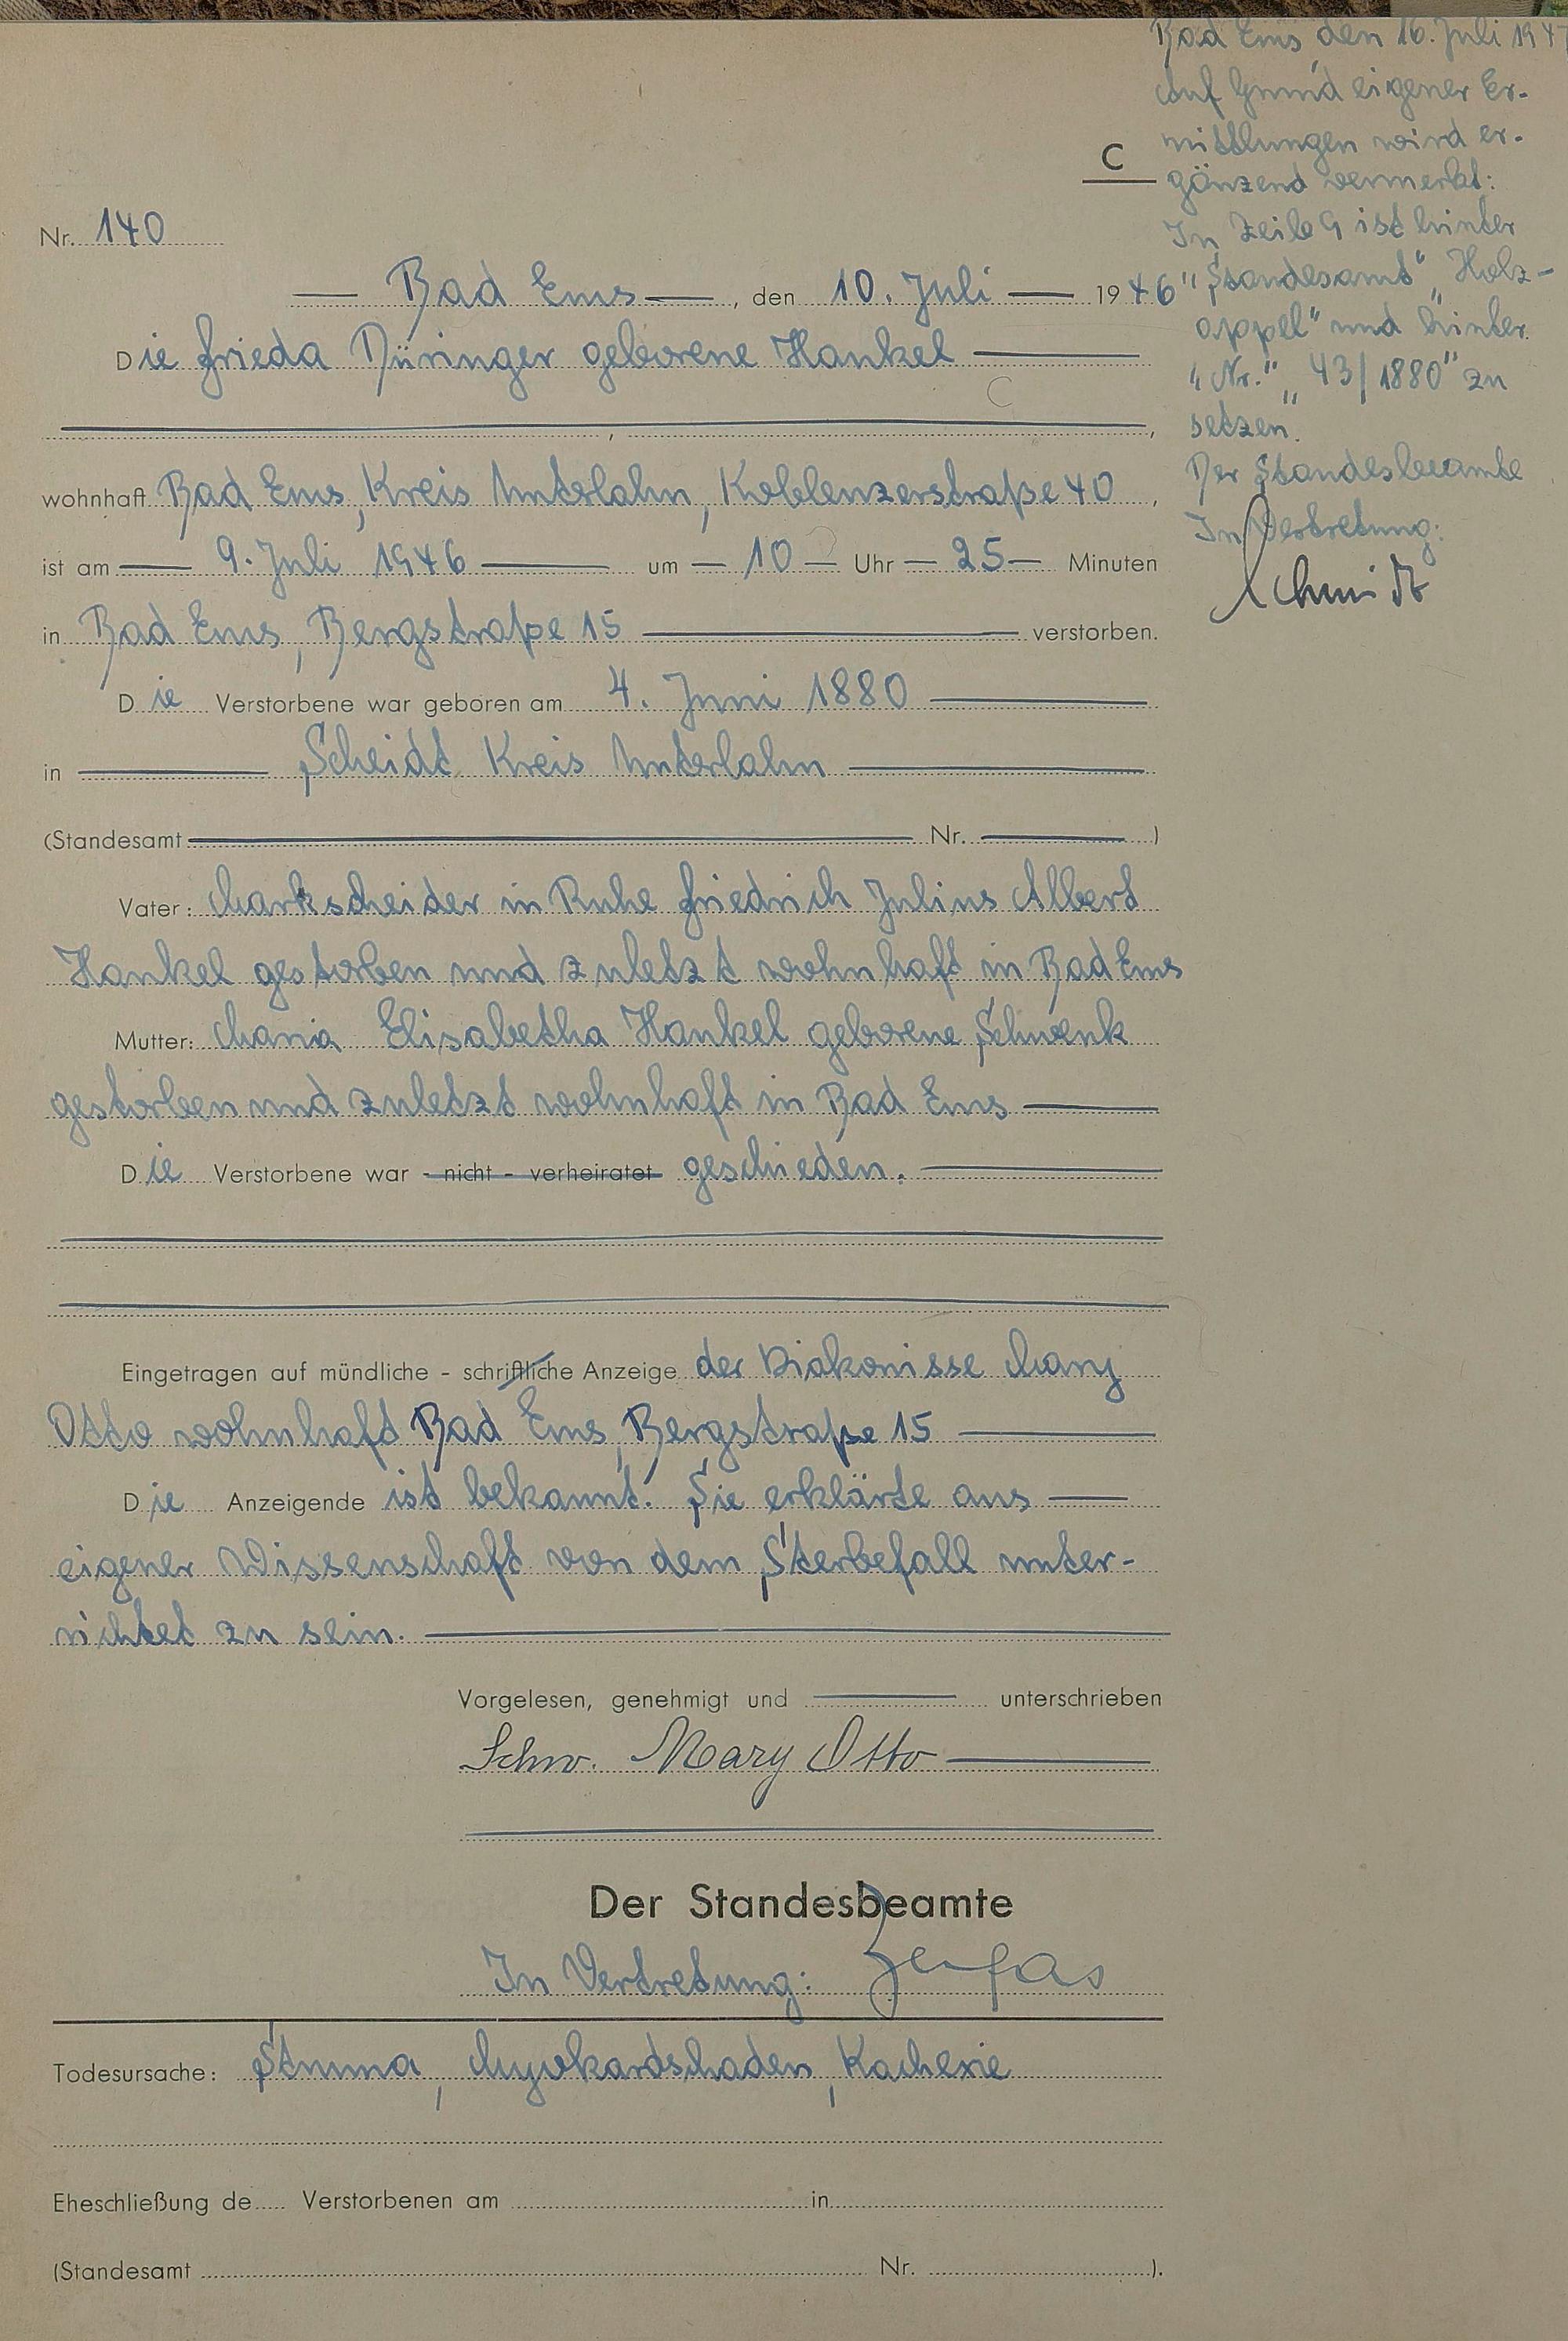 C
Nr. 140
Bad Ems, den 10. Juli 1946
Die Frieda Düringer geborene Hankel
wohnhaft Bad Ems, Kreis Unterlahn, Koblenzerstraße 40,
ist am 9. Juli 1946 um 10 Uhr 25 Minuten
in Bad Ems, Bergstraße 15 verstorben.
Die Verstorbene war geboren am 4. Juni 1880
in Scheidt Kreis Unterlahn
(Standesamt Nr. )
Vater: Markscheider in Ruhe Friedrich Julius Albert
Hankel gestorben und zuletzt wohnhaft in Bad Ems
Mutter: Maria Elisabetha Hankel geborene Schwenk
gestorben und zuletzt wohnhaft in Bad Ems
Die Verstorbene war - nicht - verheiratet geschieden.
Eingetragen auf mündliche - schriftliche Anzeige der Diakonisse Mary
Otto wohnhaft Bad Ems, Bergstraße 15
Die Anzeigende ist bekannt. Sie erklärte aus
eigener Wissenschaft von dem Sterbefall unter-
richtet zu sein.
Vorgelesen, genehmigt und unterschrieben
Schw. Mary Otto
Der Standesbeamte
In Vertretung:
Todesursache: Struma, Myokardschaden, Kachexie
Eheschließung de Verstorbenen am in
(Standesamt Nr. ).
Bad Ems, den 16. Juli 1947
Auf Grund eigener Er-
mittlungen wird er-
gänzend vermerkt:
In Zeile 9 ist hinter
"Standesamt" "Holz-
appel" und hinter
"Nr." "43/1880" zu
setzen.
Der Standesbeamte
In Vertretung:
Schmidt